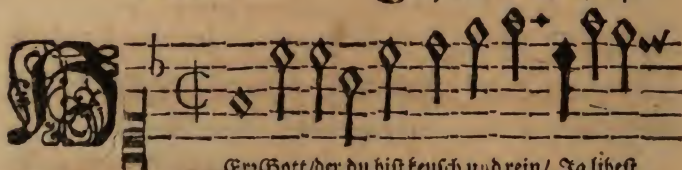 HErr Gott/der du bist keusch und rein/ Ja libest